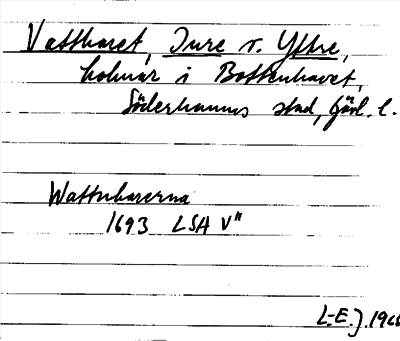 Vattharet, Inre o. Yttre,
holmar i Bottenhavet,
Söderhamns stad, Gävl. l.
Wattuharerna
1693 LSA V"
L-E. J. 196